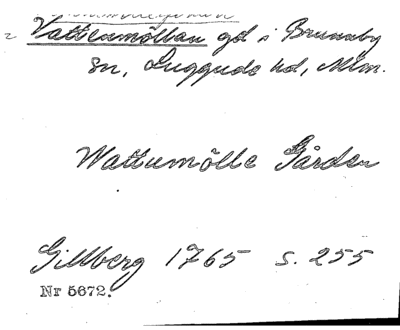 Vattenmöllan gd i Brunnby
sn, Luggude hd, Mlm.
Wattumölle Gården
Gillberg 1765 s. 255
Nr 5672.